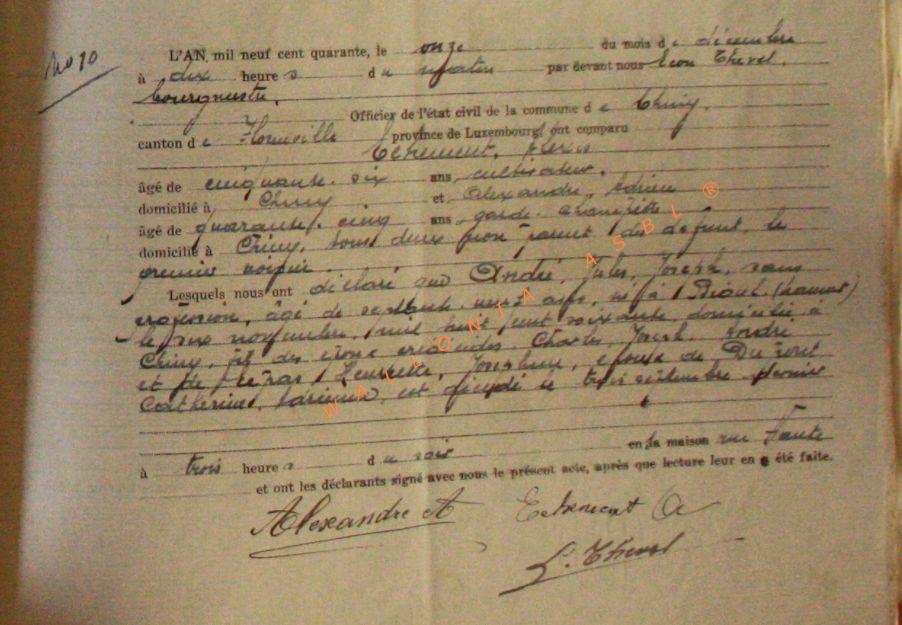 No 10
L'AN, mil neuf cent quarante, le onze du mois de décembre
à dix heures du matin par devant nous Léon Thevel,
bourgmestre,
Officier de l'état civil de la commune de Chiny,
canton de Florenville province de Luxembourg, ont comparu
âgé de cinquante-six ans, cultivateur,
domicilié à Chiny et Alexandre, Adrien
âgé de quarante-cinq ans, garde champêtre
domicilié à Chiny, tous deux non parent du défunt, le
premier voisin.
Lesquels nous ont déclaré que André, Jules, Joseph, sans
profession, âgé de septante neuf ans, né à Bioul (Namur)
le novembre mil huit cent soixante, domicilié à
Chiny, fils des époux Charles, Joseph André
et de Henriette, époux de
Catherine, est décédé le trois décembre dernier
à trois heures du soir en la maison rue Haute
et ont les déclarants signé avec nous le présent acte, après que lecture leur en a été faite.
Alexandre A
L. Thevel
WALLONIA ASBL ®